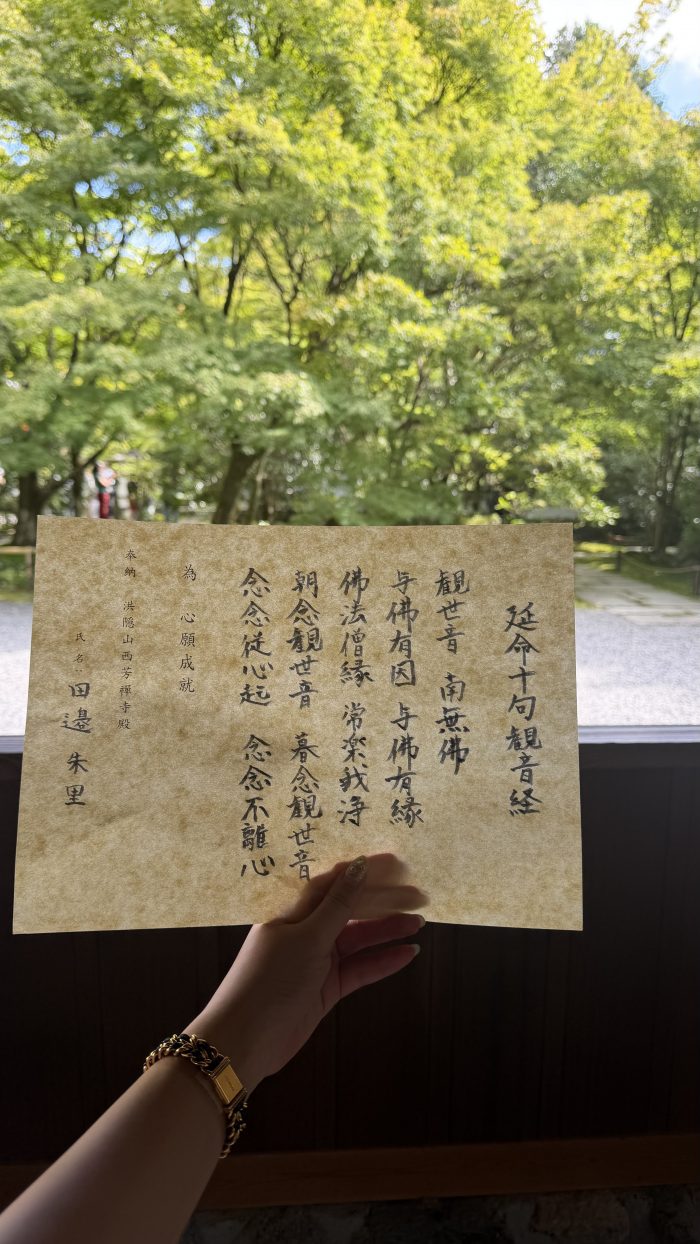 延命十句観音経
観世音 南無佛
与佛有因 与佛有縁
佛法僧縁 常楽我浄
朝念観世音 暮念観世音
念念従心起 念念不離心
為 心願成就
奉納 洪隠山西芳禅寺殿
氏名 田邉 朱里